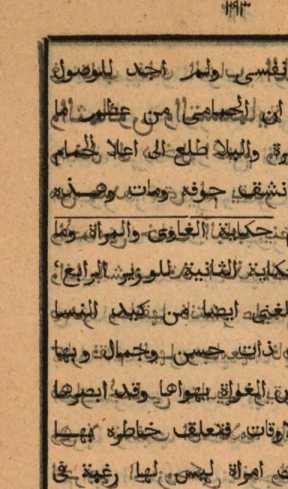 ٢٩٣
نفسى ولم اجد للوصول
ان الحمامى من عظم ما
والبلا طلع الى اعلا الحمام
نشف جوفه ومات وهذه
حكاية الغاوى والمراة وما
حكاية الثانية للوزير الرابع
ايضا من كيد النسا
ذات حسن وجمال وبها
الغواة يهواها وقد ابصرها
اوقات فتعلق خاطره بها
امراة ليس لها رغبة فى